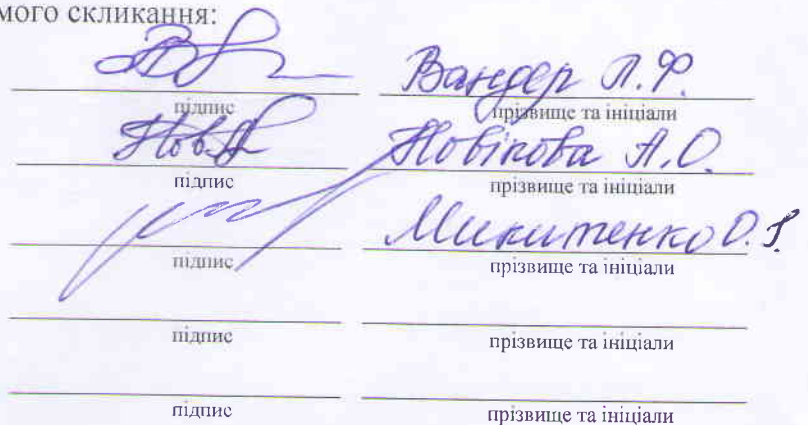 мого скликання:
Вандер Л.Ф.
підпис прізвище та ініціали
Нов Новікова А.О.
підпис прізвище та ініціали
Микитенко О.
підпис прізвище та ініціали
підпис прізвище та ініціали
підпис прізвище та ініціали